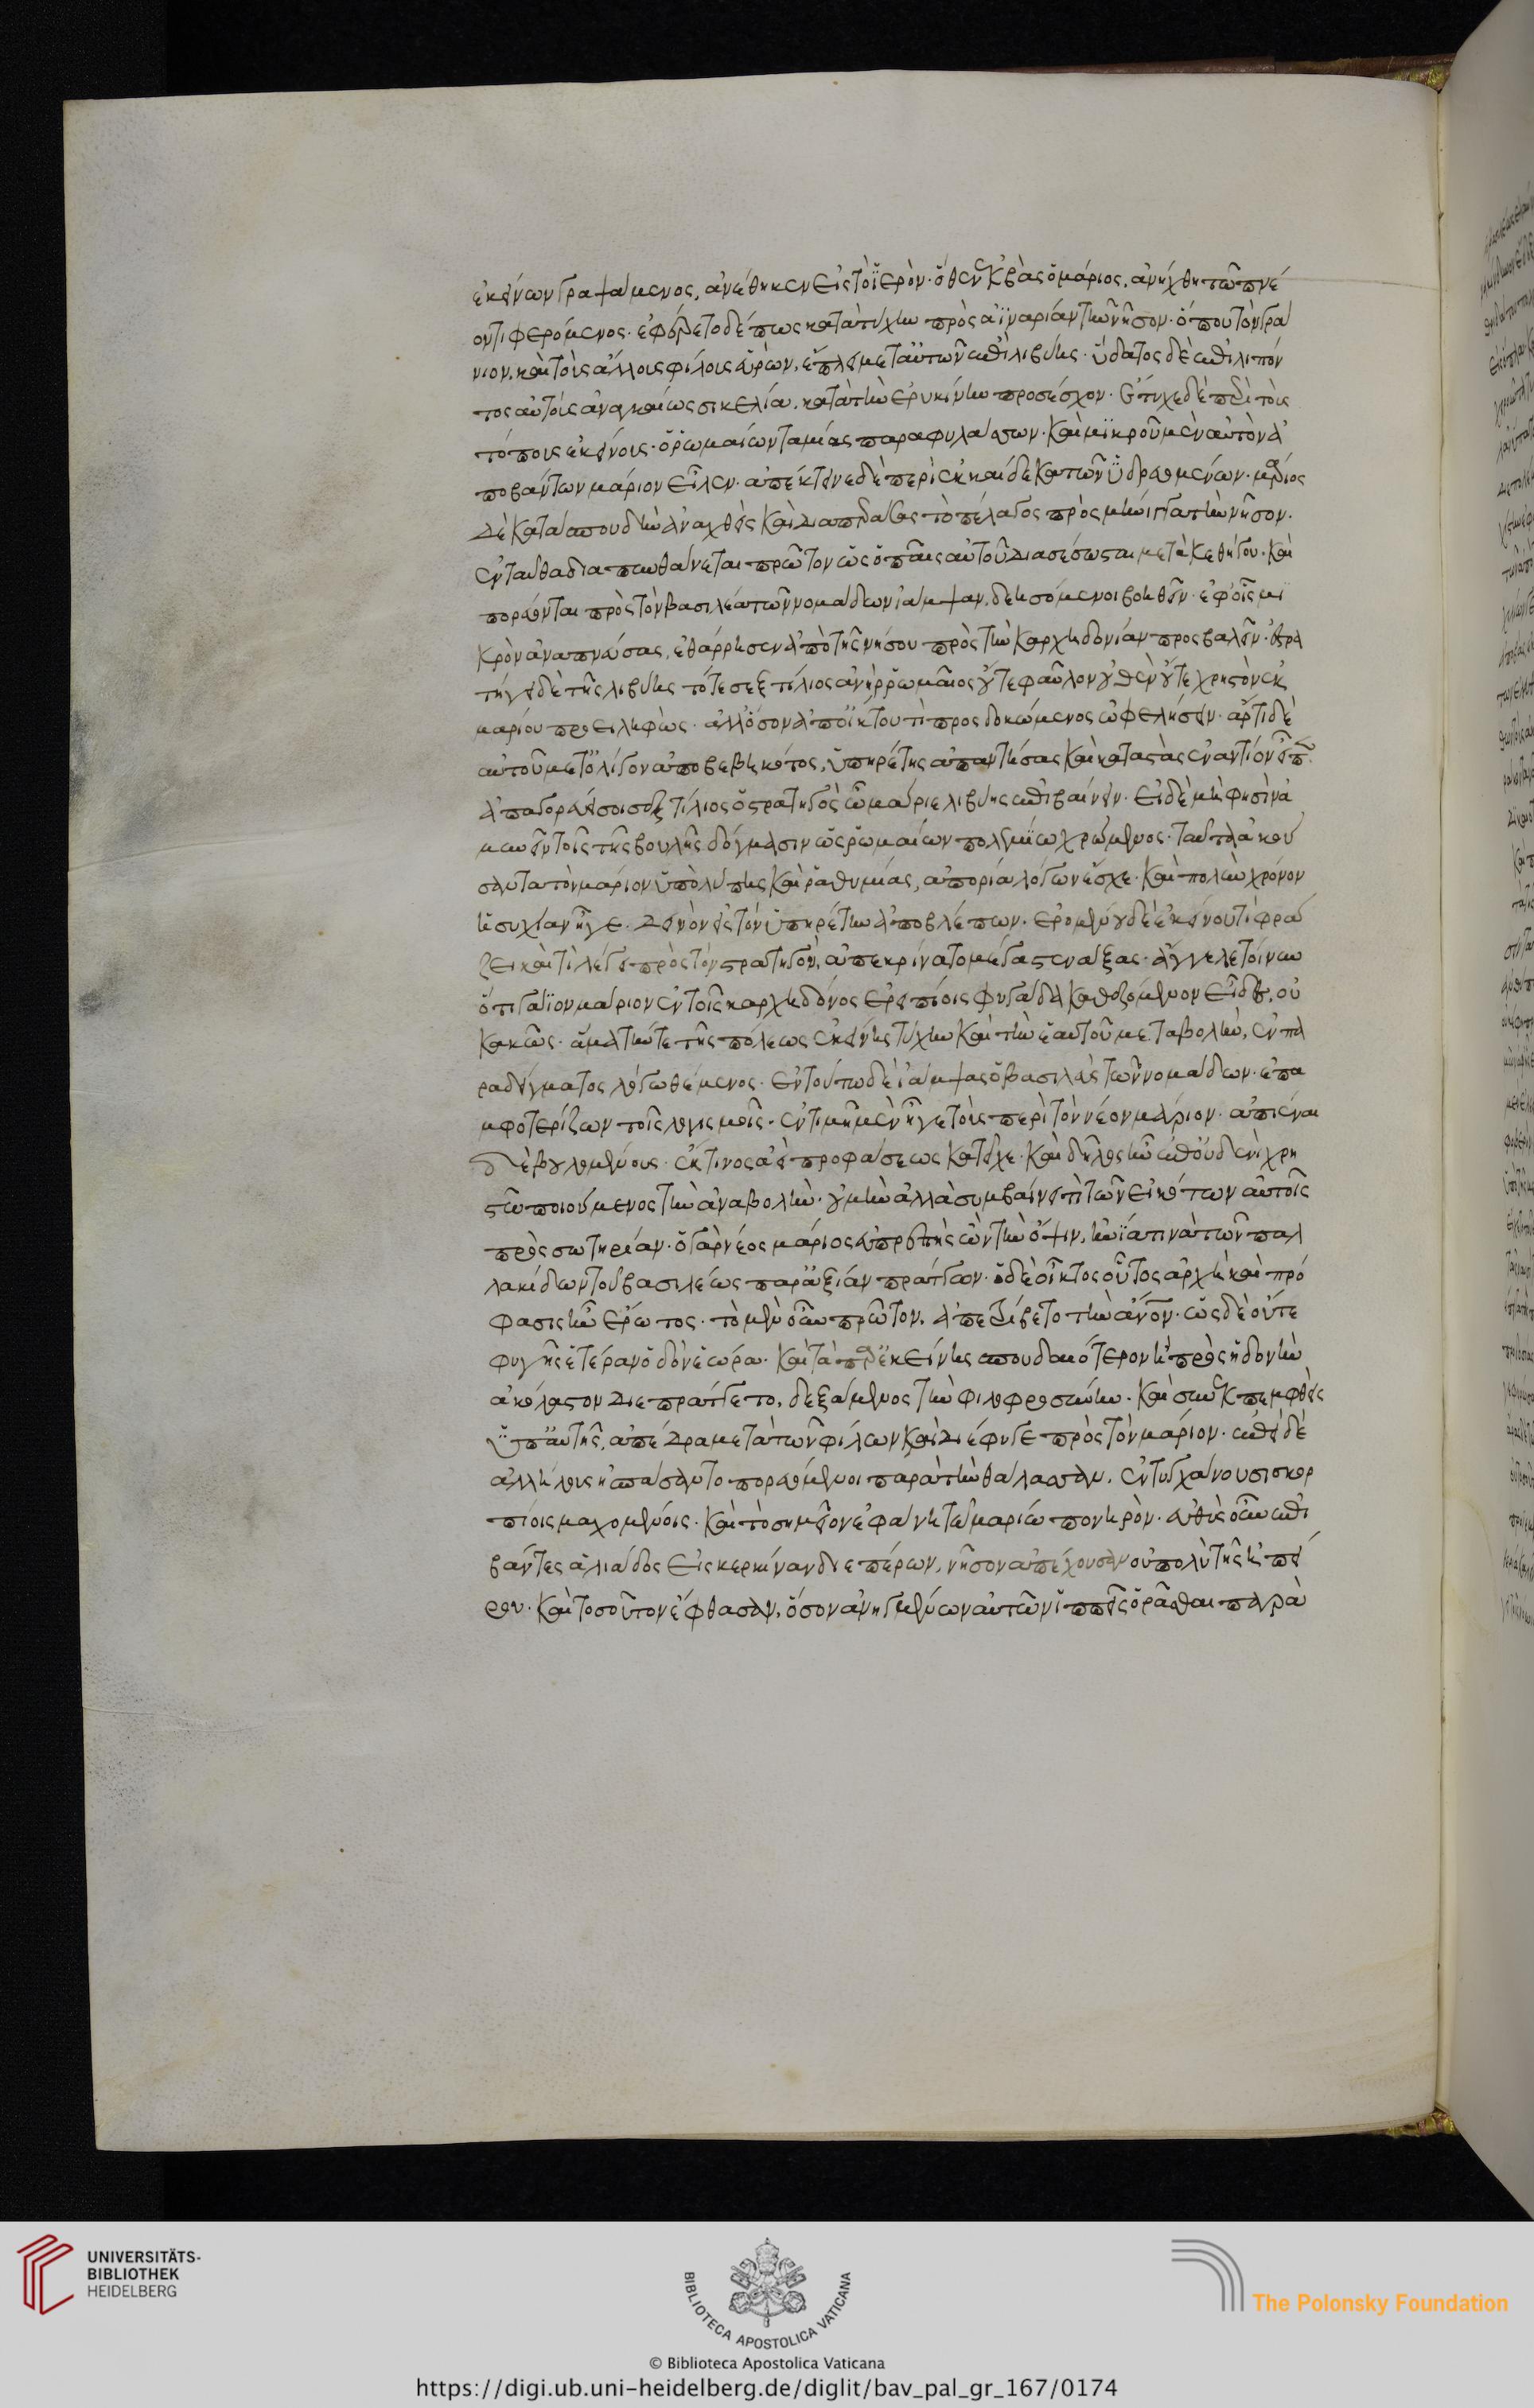 ἐκείνων γραψάμενος, ἀνέθηκεν εἰς τὸ ἱερόν· ὅθεν ἐκβὰς ὁ μάριος, ἀνήχθη τῶ πνέ
οντι φερόμενος· ἐφέρετο δέ πως κατὰ τύχην πρὸς αἰναρίαν τὴν νῆσον· ὅπου τὸν γρά
νιον, καὶ τοὺς ἄλλους φίλους εὑρὼν, ἔπλει μετ' αὐτῶν ἐπὶ λιβύης· ὕδατος δὲ ἐπιλιπόν
τος αὐτοῖς ἀναγκαίως σικελία, κατὰ τὴν ἐρυκίνην προσέσχον· ἔτυχε δὲ περὶ τοὺς
τόπους ἐκείνους· ὁ ῥωμαίων ταμίας παραφυλάσσων· καὶ μικροῦ μὲν αὐτὸν ἀ
ποβάντων μάριον εἷλεν· ἀπέκτεινε δὲ περὶ ἑκκαίδεκα τῶν ὑδρευομένων· μάριος
δὲ κατὰ σπουδὴν ἀναχθεὶς καὶ διαπεράσας τὸ πέλαγος πρὸς μήνιγγα τὴν νῆσον·
ἐνταῦθα διαπυνθάνεται πρῶτον ὡς ὁ παῖς αὐτοῦ διασέσωσται μετὰ κεθήγου· καὶ
πορεύονται πρὸς τὸν βασιλέα τῶν νομάδων ἰάμψαν, δεησόμενοι βοηθεῖν· ἐφ' οἷς μι
κρὸν ἀναπνεύσας, ἐθάρρησεν ἀπὸ τῆς νήσου πρὸς τὴν καρχηδονίαν προσβαλεῖν· ἐστρα
τήγει δὲ τῆς λιβύης τότε σεξτίλιος ἀνὴρ ῥωμαῖος οὔτε φαῦλον οὐδὲν οὔτε χρηστὸν ἐκ
μαρίου προειληφώς· ἀλλ' ὅσον ἀπ' οἴκτου τὶ προσδοκώμενος ὠφελήσειν· ἄρτι δὲ
αὐτοῦ μετ' ὀλίγον ἀποβεβηκότος, ὑπηρέτης ἀπαντήσας καὶ καταστὰς ἐναντίον εἶπεν·
ἀπαγορεύει σοι σεξτίλιος ὁ στρατηγὸς ὦ μάριε λιβύης ἐπιβαίνειν· εἰ δὲ μή φησὶν ἀ
μυνεῖν τοῖς τῆς βουλῆς δόγμασιν ὡς ῥωμαίων πολεμίω χρώμενος· ταῦτα ἀκού
σαντα τὸν μάριον ὑπὸ λύπης καὶ ῥαθυμίας, ἀπορία λόγων ἔσχε· καὶ πολὺν χρόνον
ἡσυχίαν ἦγε· δεινὸν εἰς τὸν ὑπηρέτην ἀποβλέπων· ἐρομένου δὲ ἐκείνου τί φρά
ζει καὶ τί λέγει πρὸς τὸν στρατηγόν, ἀπεκρίνατο μέγα στενάξας· ἄγγελε τοίνυν
ὅτι γάϊον μάριον ἐν τοῖς καρχηδόνος ἐρειπίοις φυγάδα καθεζόμενον εἶδες, οὐ
κακῶς· ἅμα τήν τε τῆς πόλεως ἐκείνης τύχην καὶ τὴν ἑαυτοῦ μεταβολήν, ἐν πα
ραδείγματος λόγω θέμενος· ἐν τούτω δὲ ἰάμψας ὁ βασιλεὺς τῶν νομάδων· ἐπα
μφοτερίζων τοῖς λογισμοῖς· ἐν τιμῆ μὲν ἦγε τοὺς περὶ τὸν νέον μάριον· ἀπιέναι
δὲ βουλομένους· ἔκ τινος ἀεὶ προφάσεως κατεῖχε· καὶ δῆλος ἦν ἐπ' οὐδενὶ χρη
στῶ ποιούμενος τὴν ἀναβολήν· οὐ μὴν ἀλλὰ συμβαίνει τὶ τῶν εἰκότων αὐτοῖς
πρὸς σωτηρίαν· ὁ γὰρ νέος μάριος εὐπρεπὴς ὢν τὴν ὄψιν, ἠνία τινὰ τῶν παλ
λακίδων τοῦ βασιλέως παρ' ἀξίαν πράττων· ὁ δὲ οἶκτος οὗτος ἀρχὴ καὶ πρό
φασις ἦν ἔρωτος· τὸ μὲν οὖν πρῶτον, ἀπετρίβετο τὴν ἄνον· ὡς δὲ οὔτε
φυγῆς ἑτέραν ὁδὸν ἑώρα· καὶ τὰ παρ' ἐκείνης σπουδαιότερον ἢ πρὸς ἡδονὴν
ἀκόλαστον διεπράττετο, δεξάμενος τὴν φιλοφροσύνην· καὶ συνεκπεμφθεὶς
ὑπ' αὐτῆς, ἀπέδρα μετὰ τῶν φίλων καὶ διέφυγε πρὸς τὸν μάριον· ἐπεὶ δὲ
ἀλλήλους ἠσπάσαντο πορευόμενοι παρὰ τὴν θάλασσαν, ἐντυγχάνουσι σκορ
πίοις μαχομένοις· καὶ τὸ σημεῖον ἐφάνη τῶ μαρίω πονηρὸν· εὐθὺς οὖν ἐπι
βάντες ἁλιάδος εἰς κερκίναν διεπέρων, νῆσον ἀπέχουσαν οὐ πολὺ τῆς ἠπεί
ρου· καὶ τοσοῦτον ἔφθασαν, ὅσον ἀνηγμένων αὐτῶν ἱππεῖς ὁρᾶσθαι παρὰ
UNIVERSITÄTS-
BIBLIOTHEK
HEIDELBERG
BIBLIOTECA APOSTOLICA VATICANA
The Polonsky Foundation
© Biblioteca Apostolica Vaticana
https://digi.ub.uni-heidelberg.de/diglit/bav_pal_gr_167/0174